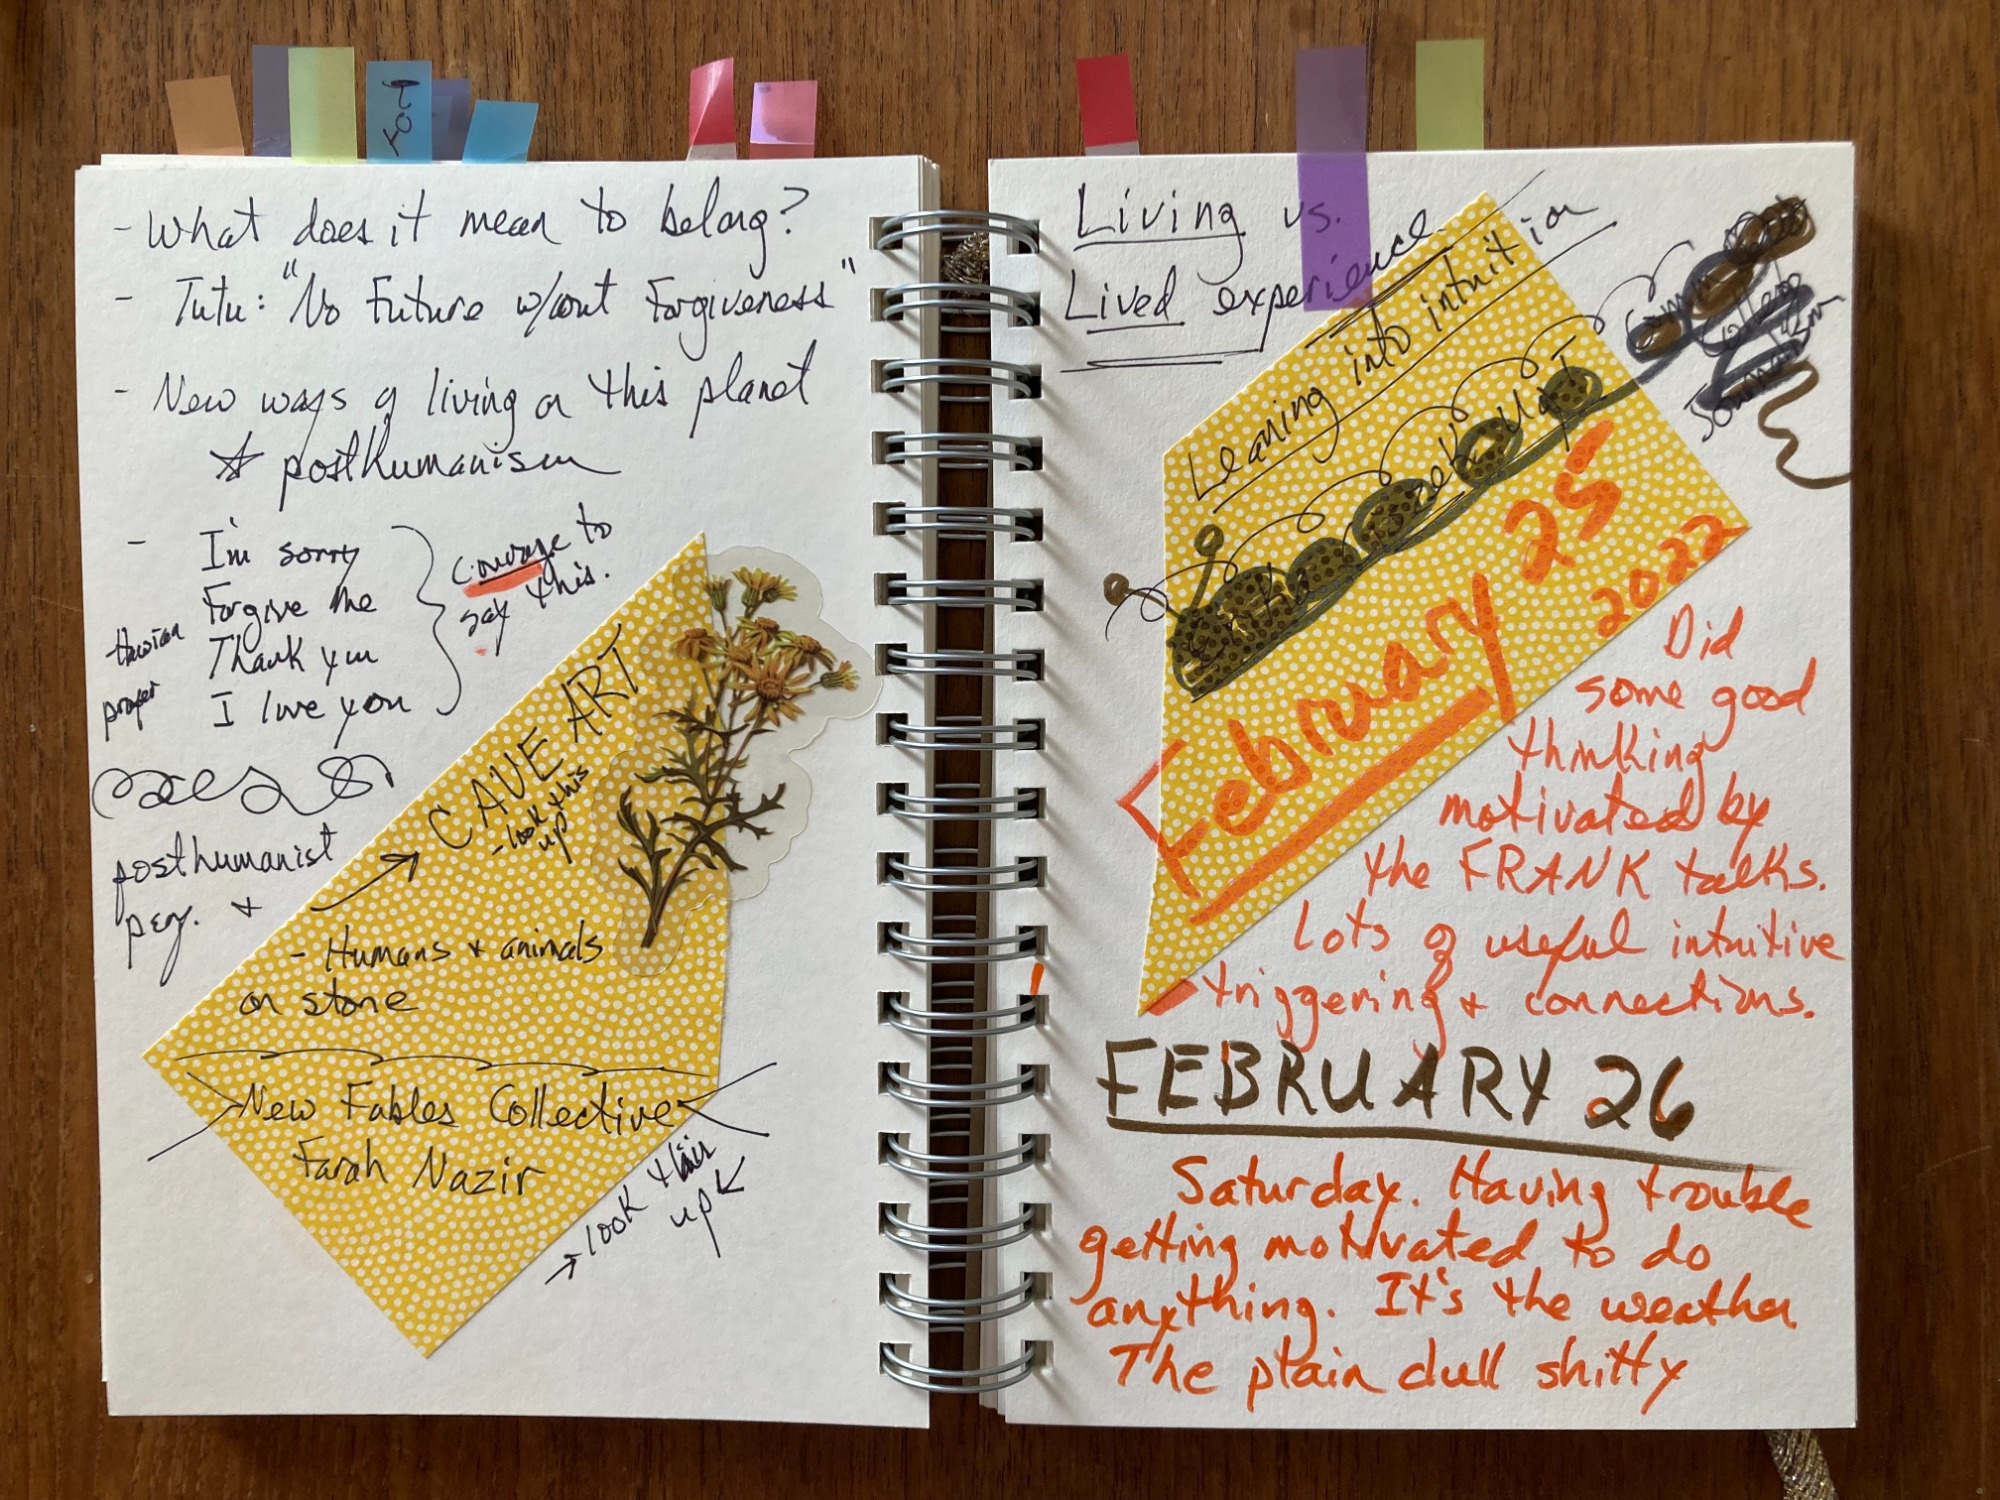 - What does it mean to belong?
- Tutu: "No Future w/out Forgiveness"
- New ways of living on this planet
☆ posthumanism
- I'm sorry
Forgive Me
Thank you
I love you
Courage to
say this.
prayer
CAVE ART
- look this
up
posthumanist
+
- Humans + animals
on stone
New Fables Collective
Farah Nazir
→ look
up
Living vs.
Lived experience
Leaning into intuition
February 25
2022
Did
some good
thinking
motivated by
the FRANK talks.
Lots of useful intuitive
triggering + connections.
FEBRUARY 26
Saturday. Having trouble
getting motivated to do
anything. It's the weather
The plain dull shitty